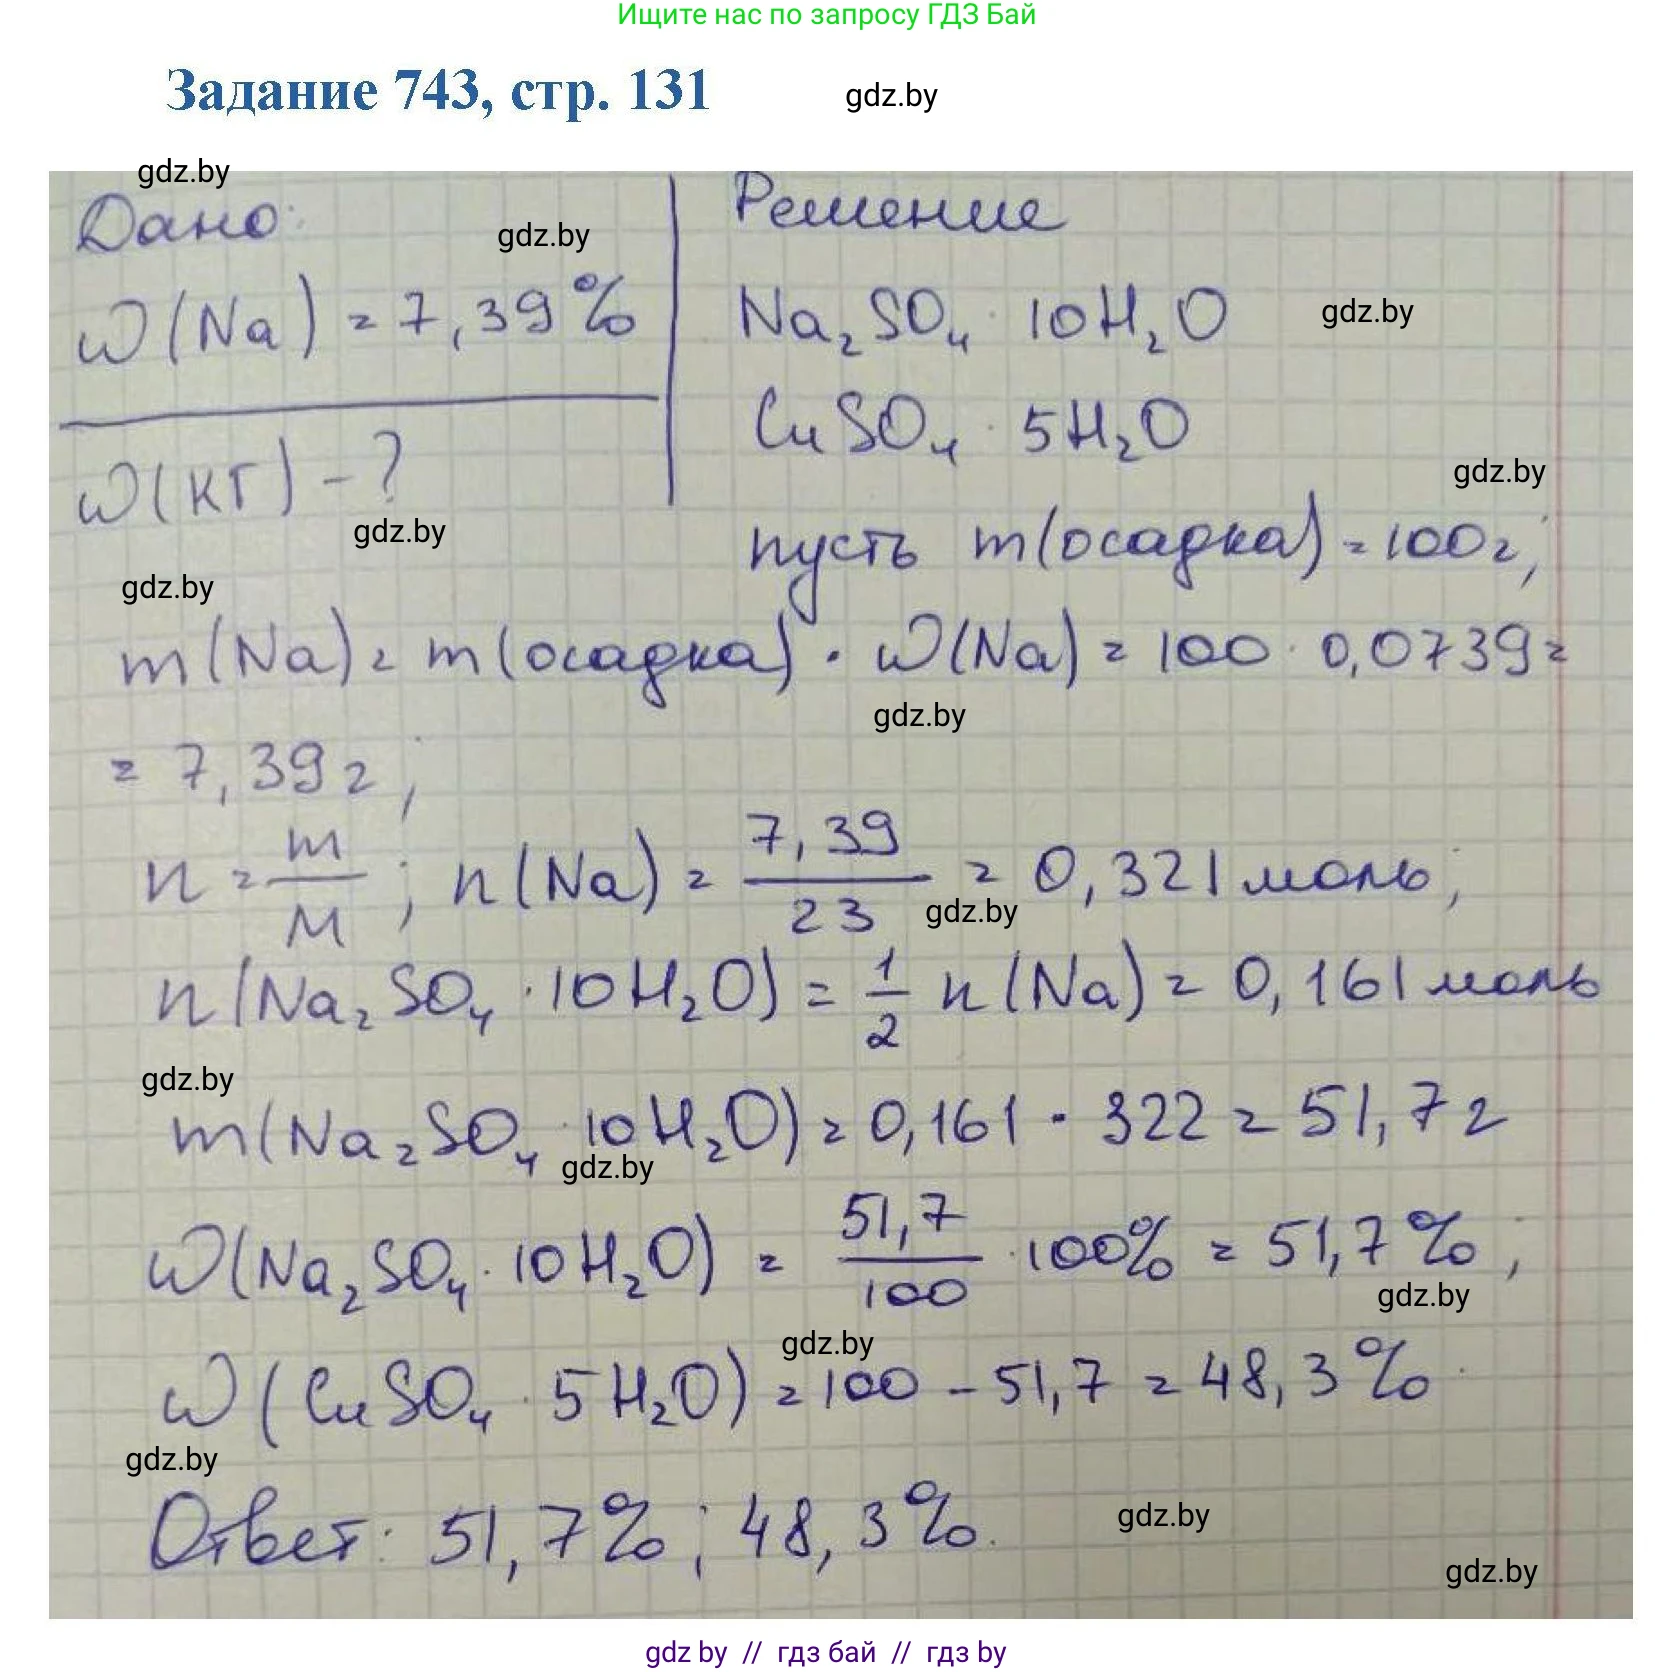 Ищите нас по запросу ГДЗ Бай
Задание 743, стр. 131
gdz.by
gdz.by
Дано:
Решение
gdz.by
ω(Na) = 7,39%
Na₂SO₄ · 10H₂O
gdz.by
CuSO₄ · 5H₂O
ω(КГ) - ?
gdz.by
gdz.by
пусть m(осадка) = 100г;
gdz.by
m(Na) = m(осадка) · ω(Na) = 100 · 0,0739 =
gdz.by
= 7,39г;
n = m/M ; n(Na) = 7,39/23 = 0,321 моль;
gdz.by
n(Na₂SO₄ · 10H₂O) = 1/2 n(Na) = 0,161 моль
gdz.by
m(Na₂SO₄ · 10H₂O) = 0,161 · 322 = 51,7г
gdz.by
ω(Na₂SO₄ · 10H₂O) = 51,7/100 · 100% = 51,7%;
gdz.by
gdz.by
ω(CuSO₄ · 5H₂O) = 100 - 51,7 = 48,3%.
gdz.by
Ответ: 51,7%; 48,3%.
gdz.by
gdz.by
gdz by // гдз бай // гдз by